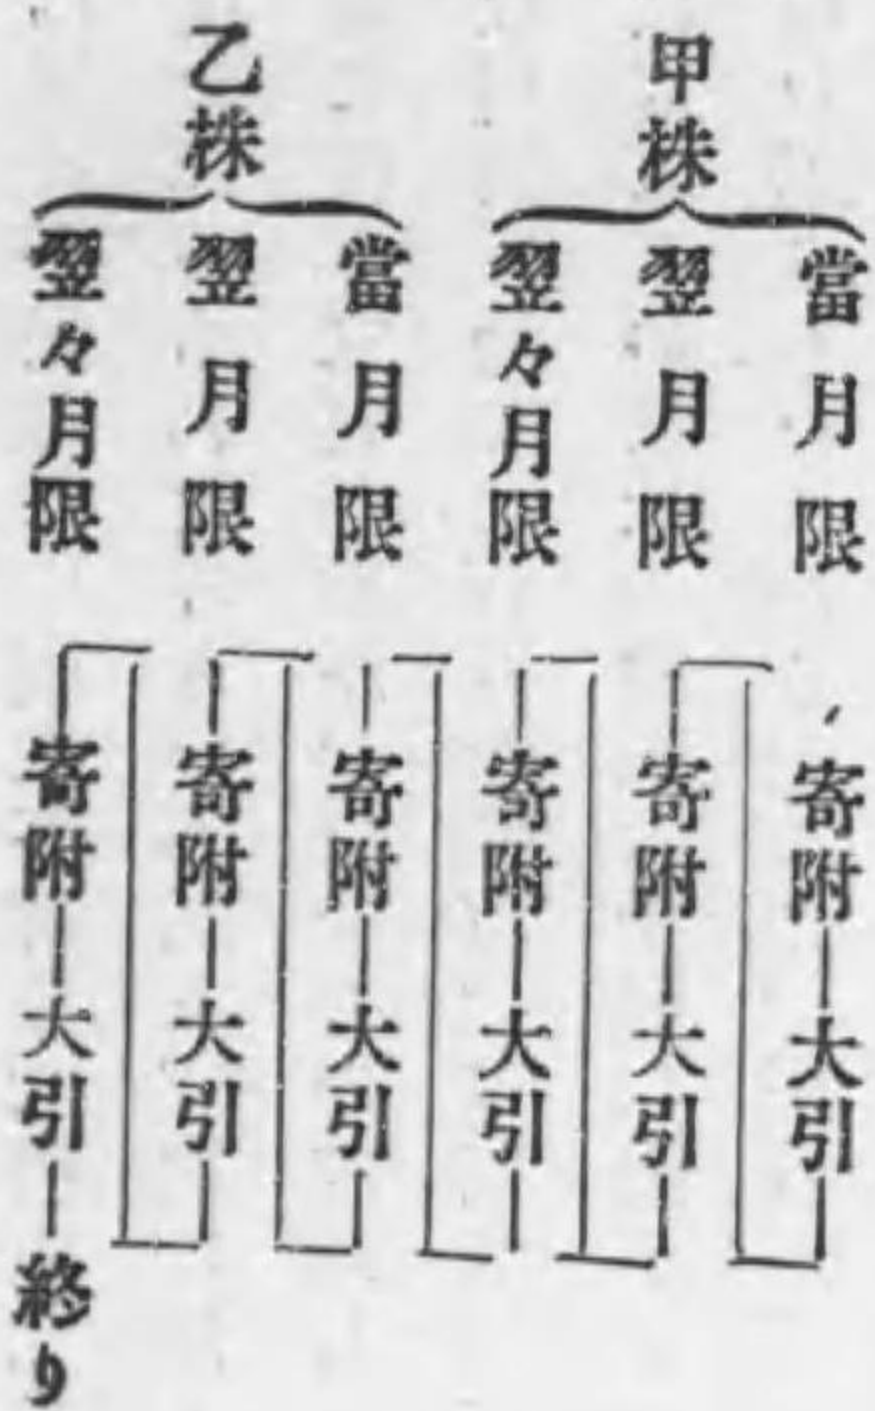 甲株
當月限
寄附
大引
翌月限
寄附
大引
翌々月限
寄附
大引
乙株
當月限
寄附
大引
翌月限
寄附
大引
翌々月限
寄附
大引
終り